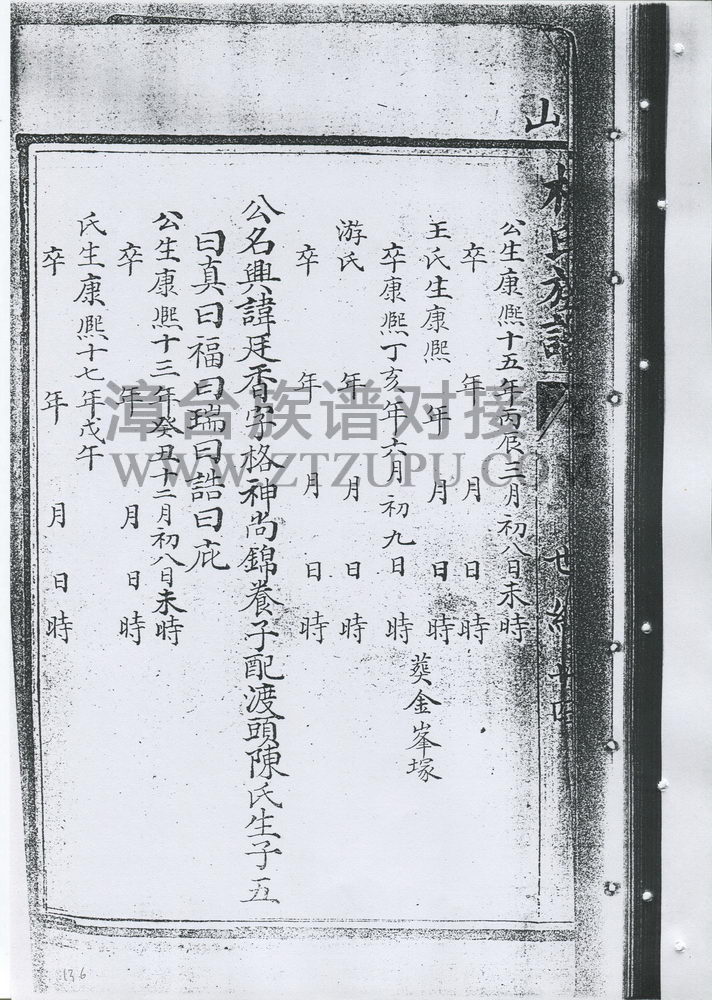 山
林氏族譜
世紀
公生康熙十五年丙辰三月初八日未時
卒 年 月 日 時
王氏生康熙 年 月 日 時 葬金峯塚
卒康熙丁亥年六月初九日 時
游氏 年 月 日 時
卒 年 月 日 時
公名興諱廷香字格神尚錦養子配渡頭陳氏生子五
曰真曰福曰瑞曰誥曰庇
公生康熙十三年癸丑十二月初八日未時
卒 年 月 日 時
氏生康熙十七年戊午
卒 年 月 日 時
漳台族谱对接
WWW.ZTZUPU.COM
136